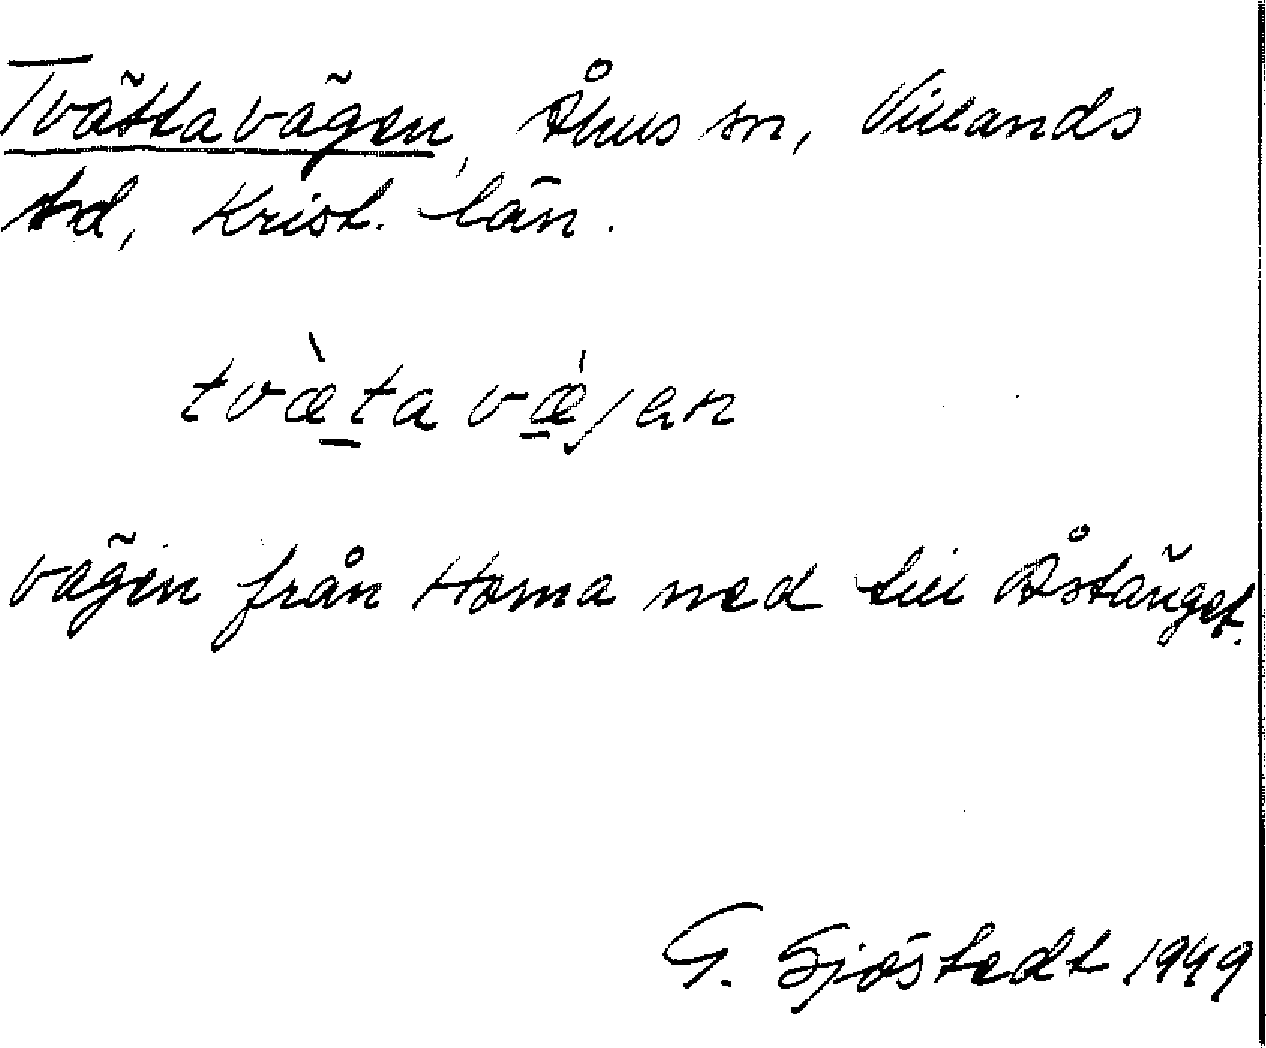 Tvättavägen, Åhus sn, Villands
hd, Krist. län.
tvæ̀ta vǽjen
vägen från Horna ned till Åstänget.
G. Sjöstedt 1949